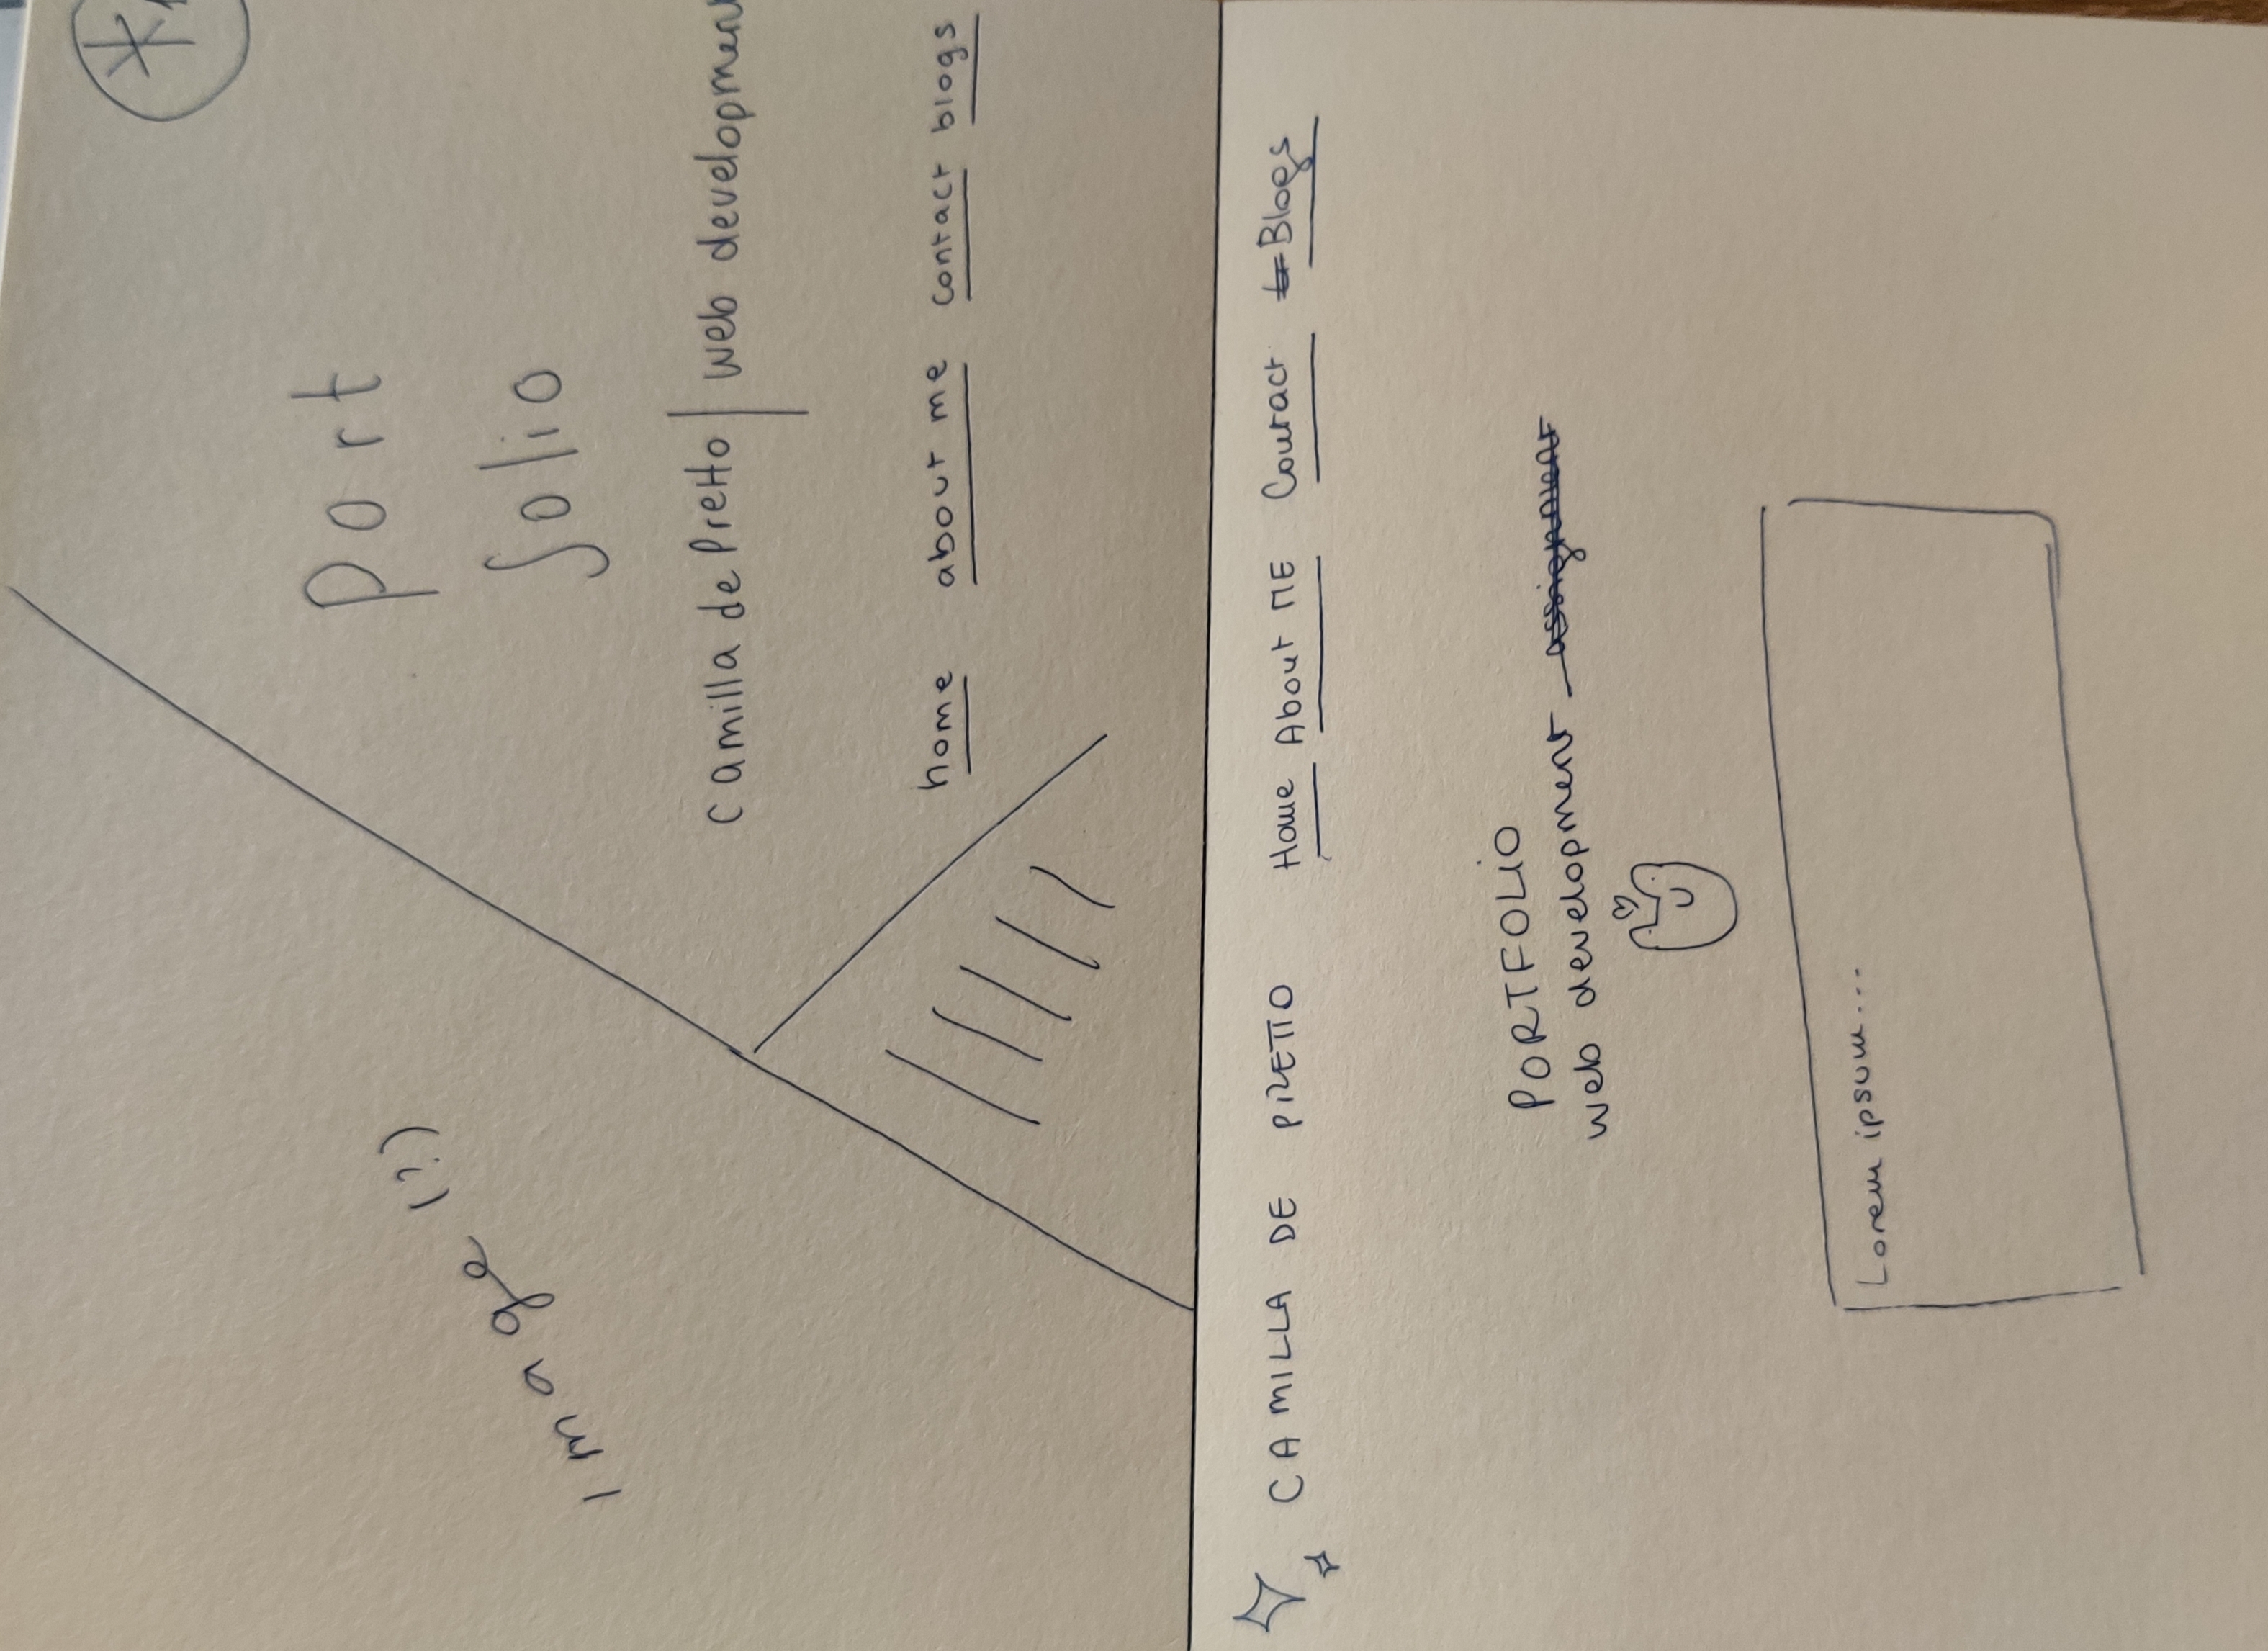 port
folio
camilla de Pretto | web development
home about me contact blogs
image (?)
CAMILLA DE PRETTO Home About ME Contact Blogs
PORTFOLIO
web development assignment
Lorem ipsum...